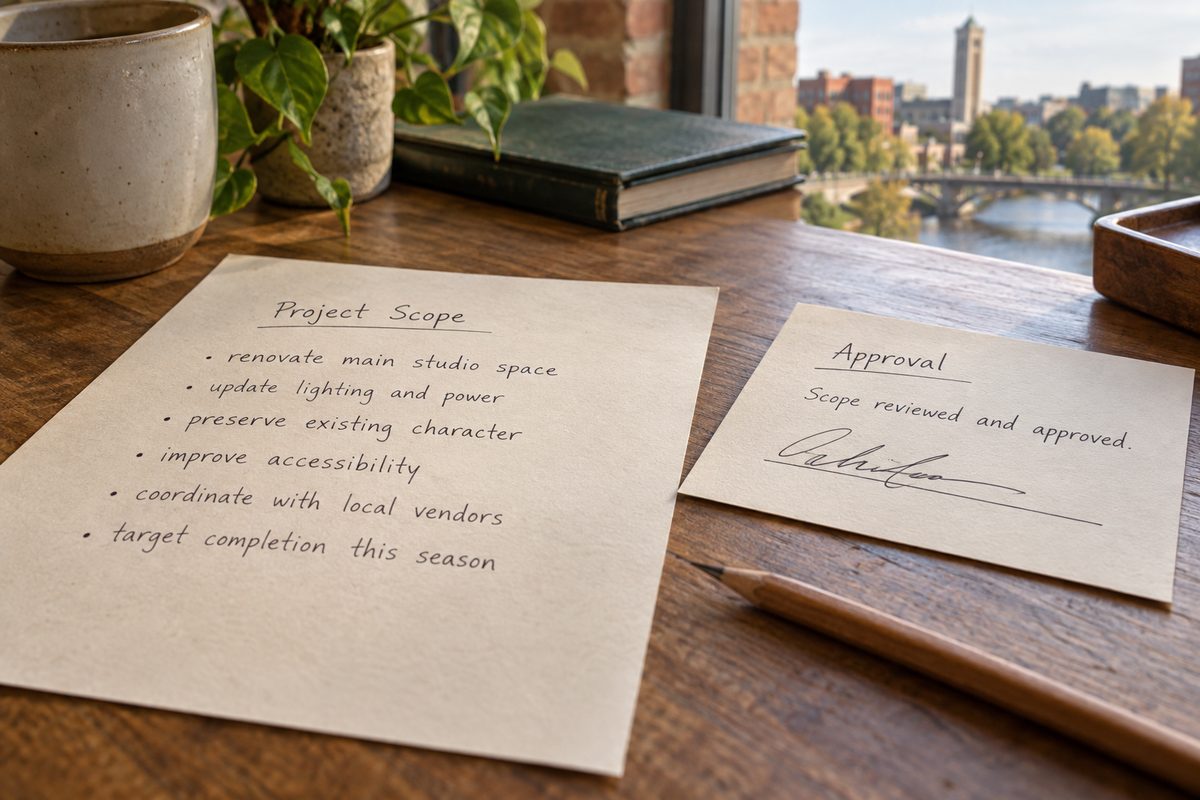 Project Scope
• renovate main studio space
• update lighting and power
• preserve existing character
• improve accessibility
• coordinate with local vendors
• target completion this season
Approval
Scope reviewed and approved.